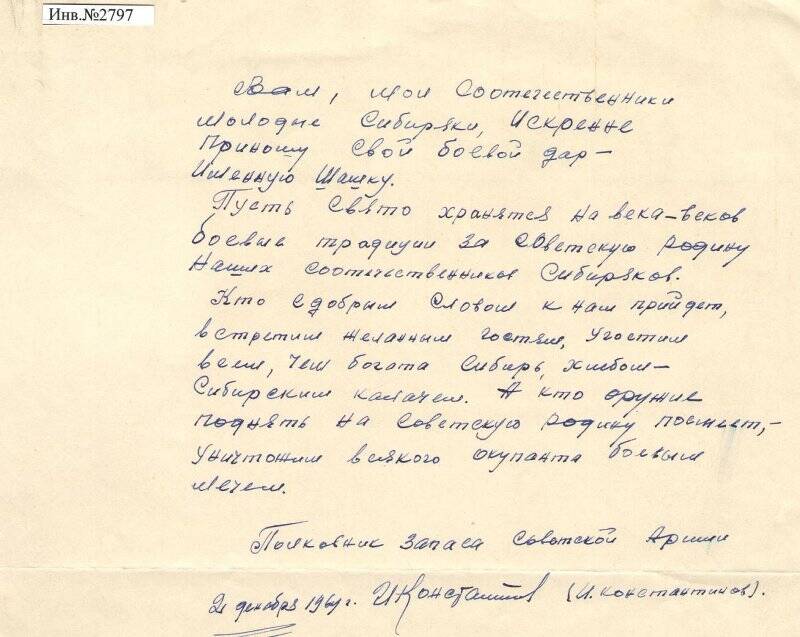 Инв.№2797
Вам, мои Соотечественники
Молодые Сибиряки, Искренне
Приношу Свой боевой дар—
Именную Шашку.
Пусть Свято хранятся на века-веков
боевые традиции за Советскую Родину
Наших соотечественников Сибиряков.
Кто с добрым словом к нам прийдет,
встретим желанным гостям, Угостим
всем, чем богата Сибирь, хлебом—
Сибирским калачем. А кто оружие
поднять на Советскую Родину посмеет,-
Уничтожим всякого окупанта боевым
Мечем.
Полковник запаса Советской Армии
декабря г. И Константинов (И. Константинов).